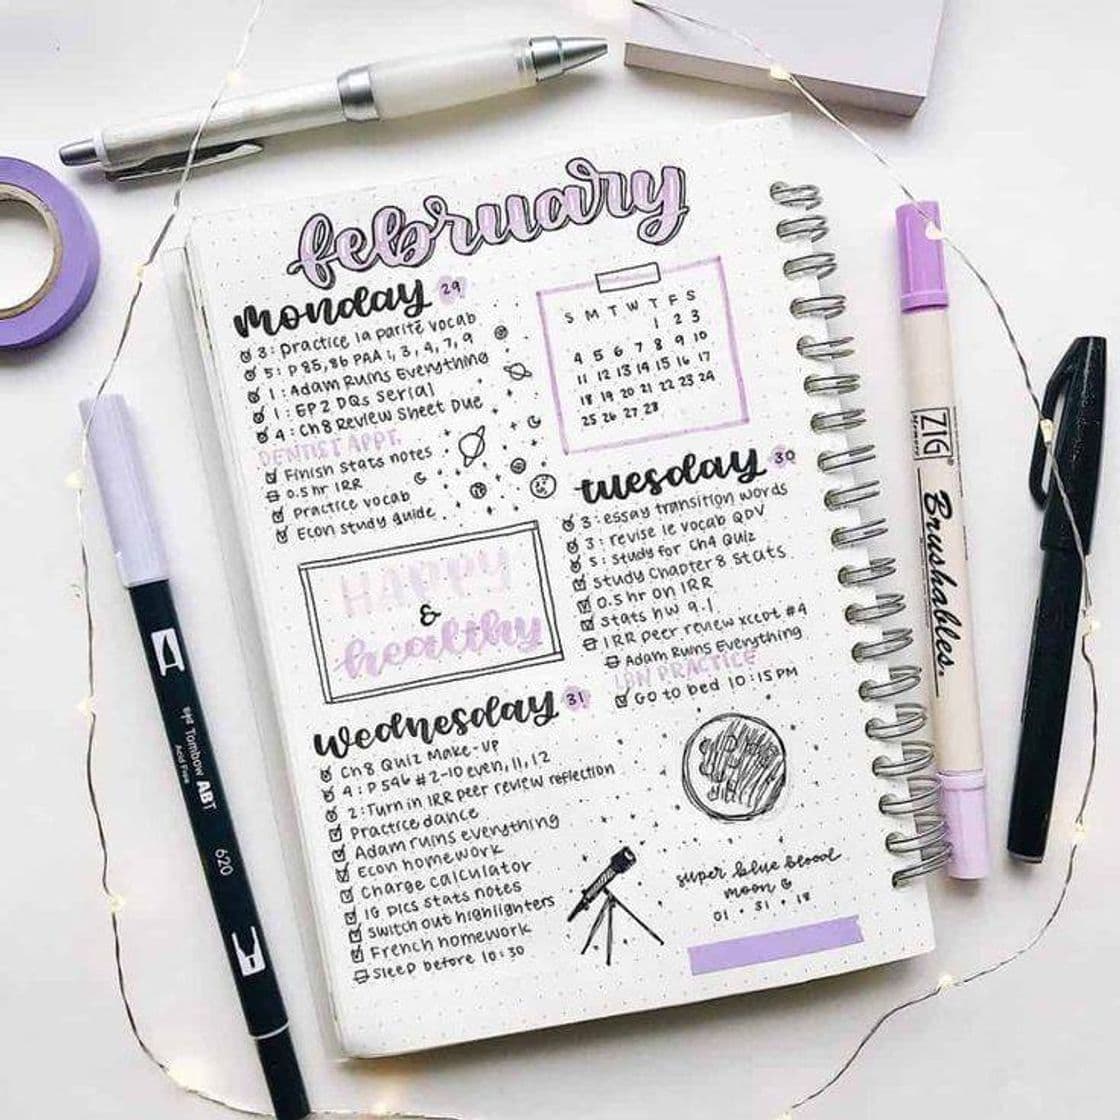 february
monday 29
3: practice la parité vocab
5: P 85, 86 PAA 1, 3, 4, 7, 9
1: Adam Ruins Everything
1: EP 2 DQs Serial
4: Ch 8 Review Sheet Due
DENTIST APPT.
Finish stats notes
0.5 hr IRR
Practice vocab
Econ study guide
S M T W T F S
1 2 3
4 5 6 7 8 9 10
11 12 13 14 15 16 17
18 19 20 21 22 23 24
25 26 27 28
tuesday 30
3: essay transition words
3: revise le vocab QDV
5: Study for Ch4 Quiz
Study Chapter 8 Stats
0.5 hr on IRR
Stats hw 9.1
IRR peer review xcept #4
Adam Ruins Everything
PRACTICE
Go to bed 10:15 PM
HAPPY
&
healthy
wednesday 31
Ch 8 Quiz Make-UP
4: P 546 #2-10 even, 11, 12
2: Turn in IRR peer review reflection
Practice dance
Adam ruins everything
Econ homework
Charge calculator
IG pics stats notes
Switch out highlighters
French homework
Sleep before 10:30
super blue blood
moon
01 • 31 • 18
Tombow ABT
Acid Free
620
ZIG
Memory
Brushables.